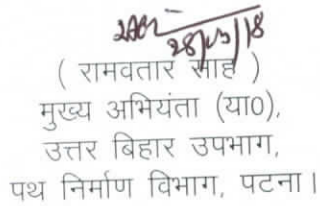 28/05/18
( रामवतार साह )
मुख्य अभियंता (या0),
उत्तर बिहार उपभाग,
पथ निर्माण विभाग, पटना।